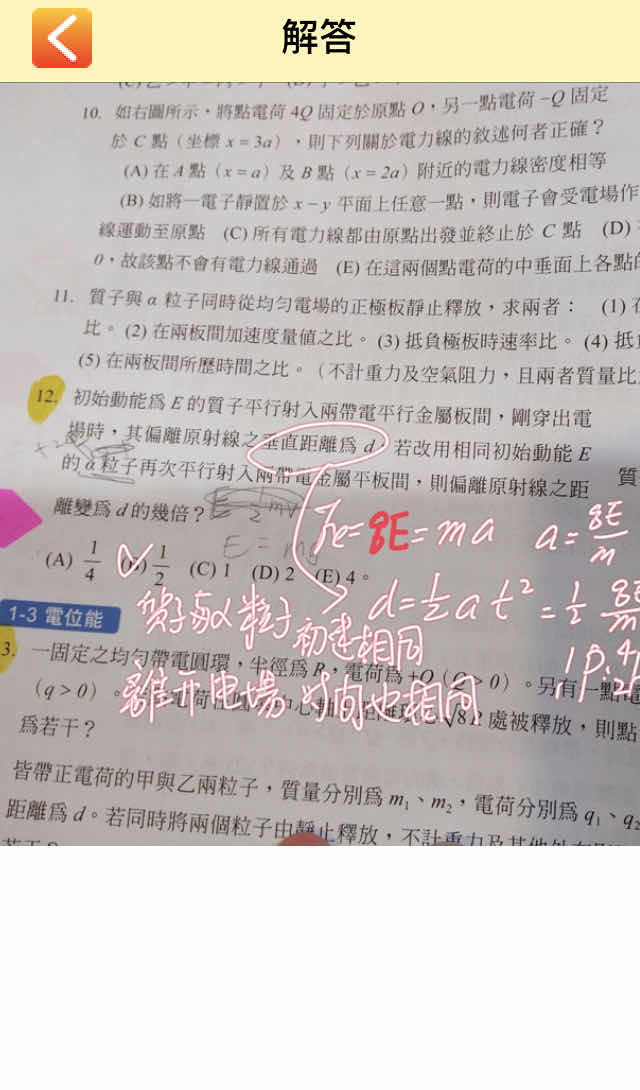 解答
10. 如右圖所示，將點電荷 4Q 固定於原點 O，另一點電荷 −Q 固定
於 C 點（坐標 x = 3a），則下列關於電力線的敘述何者正確？
(A) 在 A 點（x = a）及 B 點（x = 2a）附近的電力線密度相等
(B) 如將一電子靜置於 x − y 平面上任意一點，則電子會受電場作
線運動至原點 (C) 所有電力線都由原點出發並終止於 C 點 (D)
0，故該點不會有電力線通過 (E) 在這兩個點電荷的中垂面上各點
11. 質子與 α 粒子同時從均勻電場的正極板靜止釋放，求兩者： (1)
比。 (2) 在兩板間加速度量值之比。 (3) 抵負極板時速率比。 (4) 抵
(5) 在兩板間所歷時間之比。（不計重力及空氣阻力，且兩者質量比
12. 初始動能為 E 的質子平行射入兩帶電平行金屬板間，剛穿出電
場時，其偏離原射線之垂直距離為 d，若改用相同初始動能 E
的 α 粒子再次平行射入兩帶電金屬平板間，則偏離原射線之距
質
離變為 d 的幾倍？
Fe = qE = ma a = qE/m
(A) 1/4 (B) 1/2 (C) 1 (D) 2 (E) 4。
d = 1/2 a t² = 1/2
1-3 電位能
初速相同
3. 一固定之均勻帶電圓環，半徑為 R，電荷為 +Q（Q > 0）。另有一點電
(q > 0)。 處被釋放，則點
離開電場 時間也相同
為若干？
皆帶正電荷的甲與乙兩粒子，質量分別為 m₁、m₂，電荷分別為 q₁、q₂
距離為 d。若同時將兩個粒子由靜止釋放，不計重力及其他外